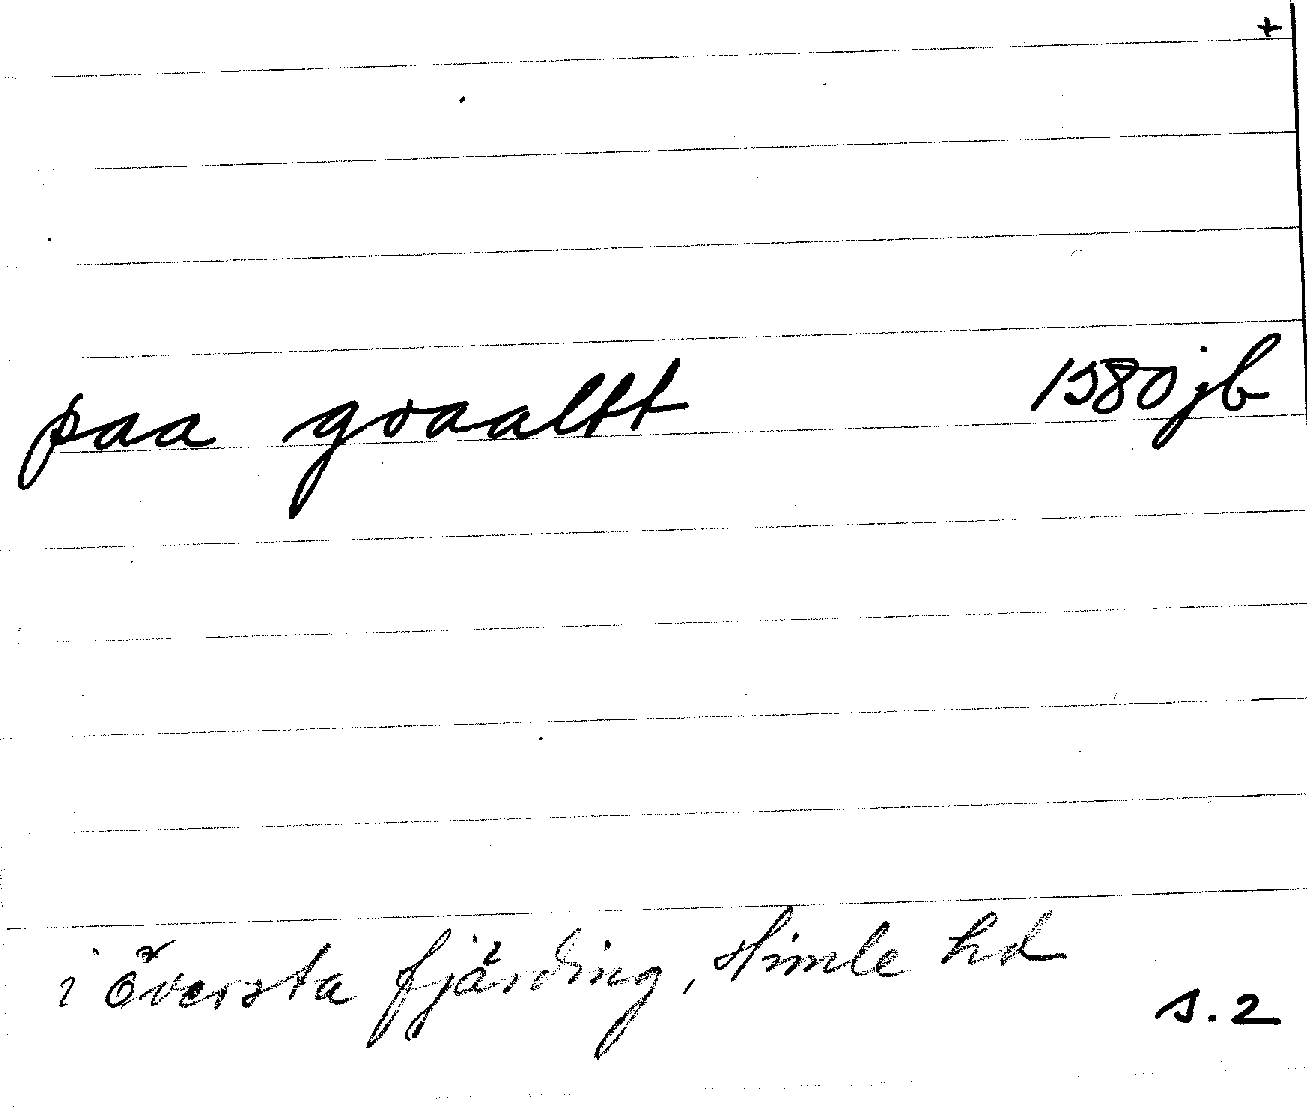 +
paa graaltt 1580 jb
i översta fjärding, Himle hd
s. 2